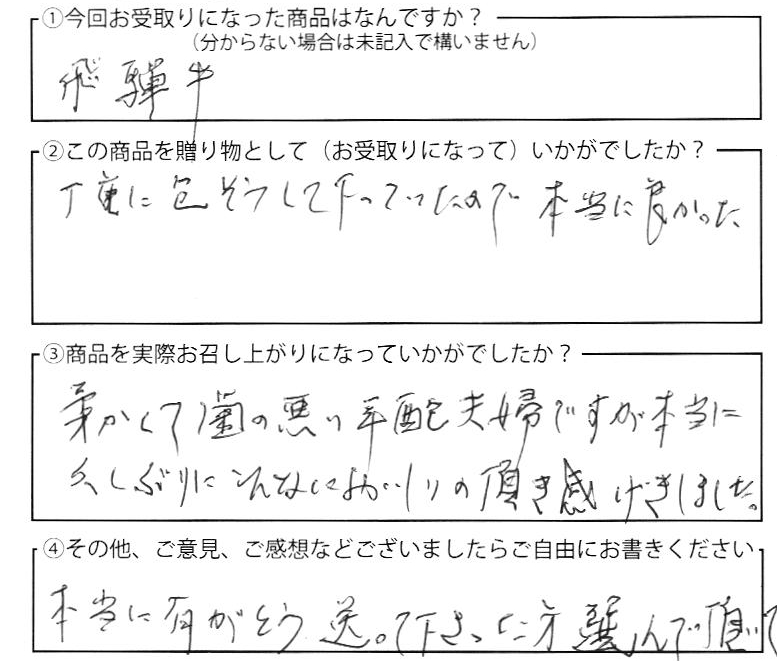 ①今回お受取りになった商品はなんですか？
（分からない場合は未記入で構いません）
飛騨牛
②この商品を贈り物として（お受取りになって）いかがでしたか？
丁重に包そうして下っていたので 本当に良かった
③商品を実際お召し上がりになっていかがでしたか？
柔かくて歯の悪い年配夫婦ですが本当に
久しぶりにこんなにおいしいの頂き感げきしました。
④その他、ご意見、ご感想などございましたらご自由にお書きください
本当に有がとう 送って下さった方 選んで頂いて